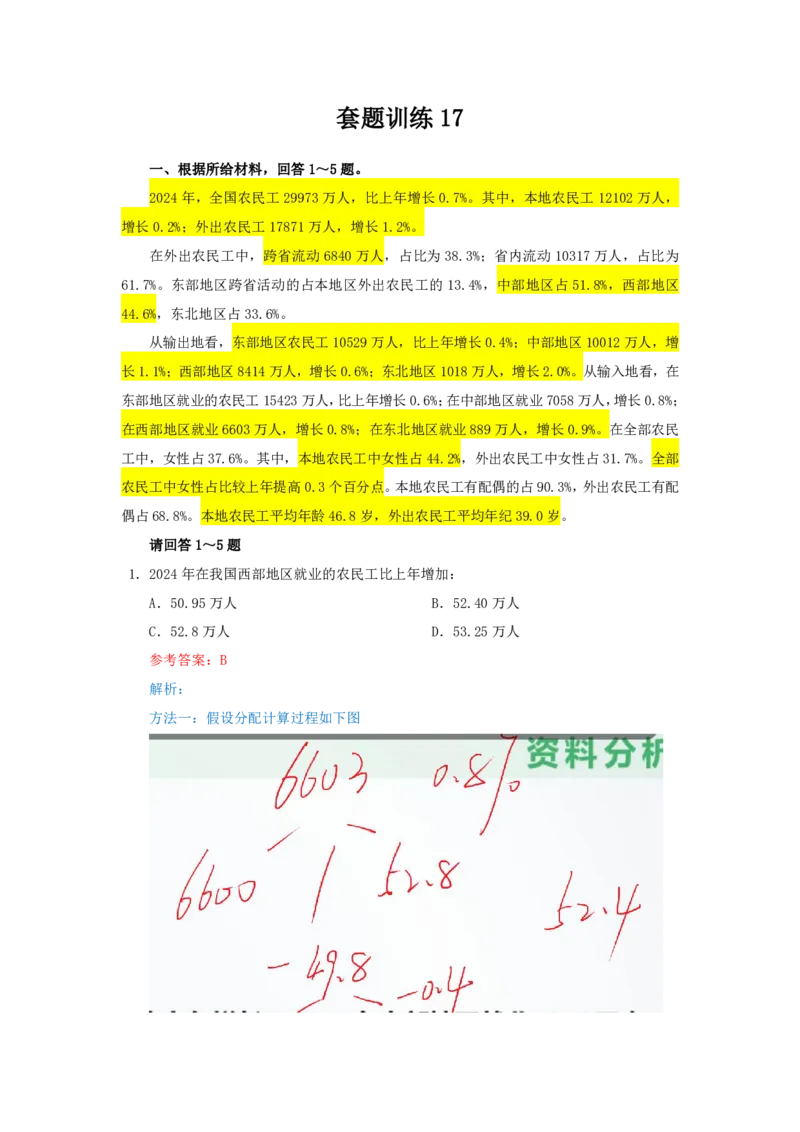 套题训练 17
一、根据所给材料，回答 1～5 题。
2024 年，全国农民工 29973 万人，比上年增长 0.7%。其中，本地农民工 12102 万人，
增长 0.2%；外出农民工 17871 万人，增长 1.2%。
在外出农民工中，跨省流动 6840 万人，占比为 38.3%；省内流动 10317 万人，占比为
61.7%。东部地区跨省活动的占本地区外出农民工的 13.4%，中部地区占 51.8%，西部地区
44.6%，东北地区占 33.6%。
从输出地看，东部地区农民工 10529 万人，比上年增长 0.4%；中部地区 10012 万人，增
长 1.1%；西部地区 8414 万人，增长 0.6%；东北地区 1018 万人，增长 2.0%。从输入地看，在
东部地区就业的农民工 15423 万人，比上年增长 0.6%；在中部地区就业 7058 万人，增长 0.8%；
在西部地区就业 6603 万人，增长 0.8%；在东北地区就业 889 万人，增长 0.9%。在全部农民
工中，女性占 37.6%。其中，本地农民工中女性占 44.2%，外出农民工中女性占 31.7%。全部
农民工中女性占比较上年提高 0.3 个百分点。本地农民工有配偶的占 90.3%，外出农民工有配
偶占 68.8%。本地农民工平均年龄 46.8 岁，外出农民工平均年纪 39.0 岁。
请回答 1～5 题
1．2024 年在我国西部地区就业的农民工比上年增加：
A．50.95 万人 B．52.40 万人
C．52.8 万人 D．53.25 万人
参考答案：B
解析：
方法一：假设分配计算过程如下图
资料分析
6603 0.8%
6600 52.8
52.4
-49.8 -0.4